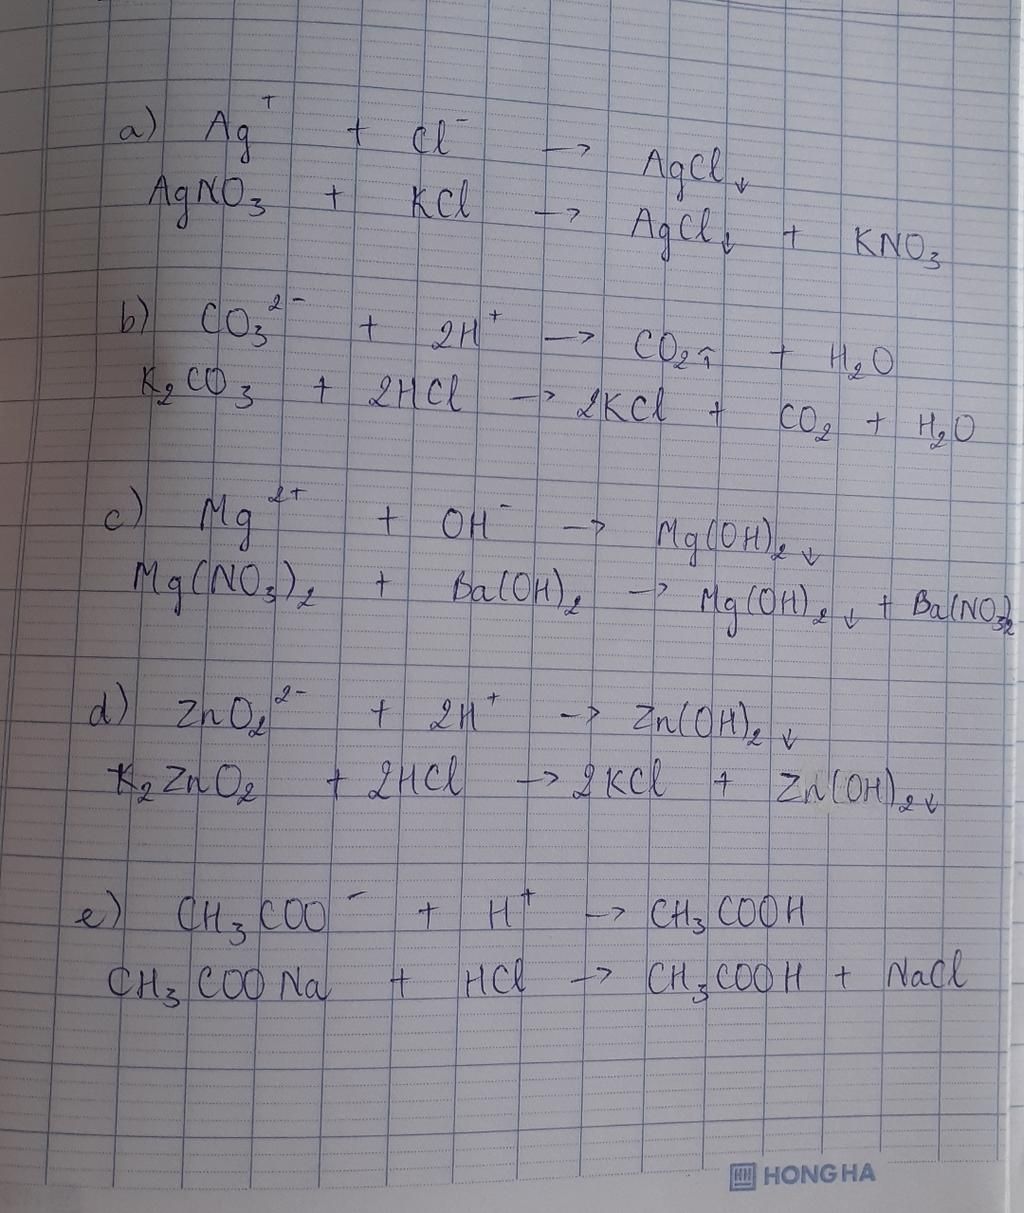 a) Ag⁺ + Cl⁻ → AgCl↓
AgNO₃ + KCl → AgCl↓ + KNO₃
b) CO₃²⁻ + 2H⁺ → CO₂↑ + H₂O
K₂CO₃ + 2HCl → 2KCl + CO₂ + H₂O
c) Mg²⁺ + OH⁻ → Mg(OH)₂↓
Mg(NO₃)₂ + Ba(OH)₂ → Mg(OH)₂↓ + Ba(NO₃)₂
d) ZnO₂²⁻ + 2H⁺ → Zn(OH)₂↓
K₂ZnO₂ + 2HCl → 2KCl + Zn(OH)₂↓
e) CH₃COO⁻ + H⁺ → CH₃COOH
CH₃COONa + HCl → CH₃COOH + NaCl
HH HONG HA